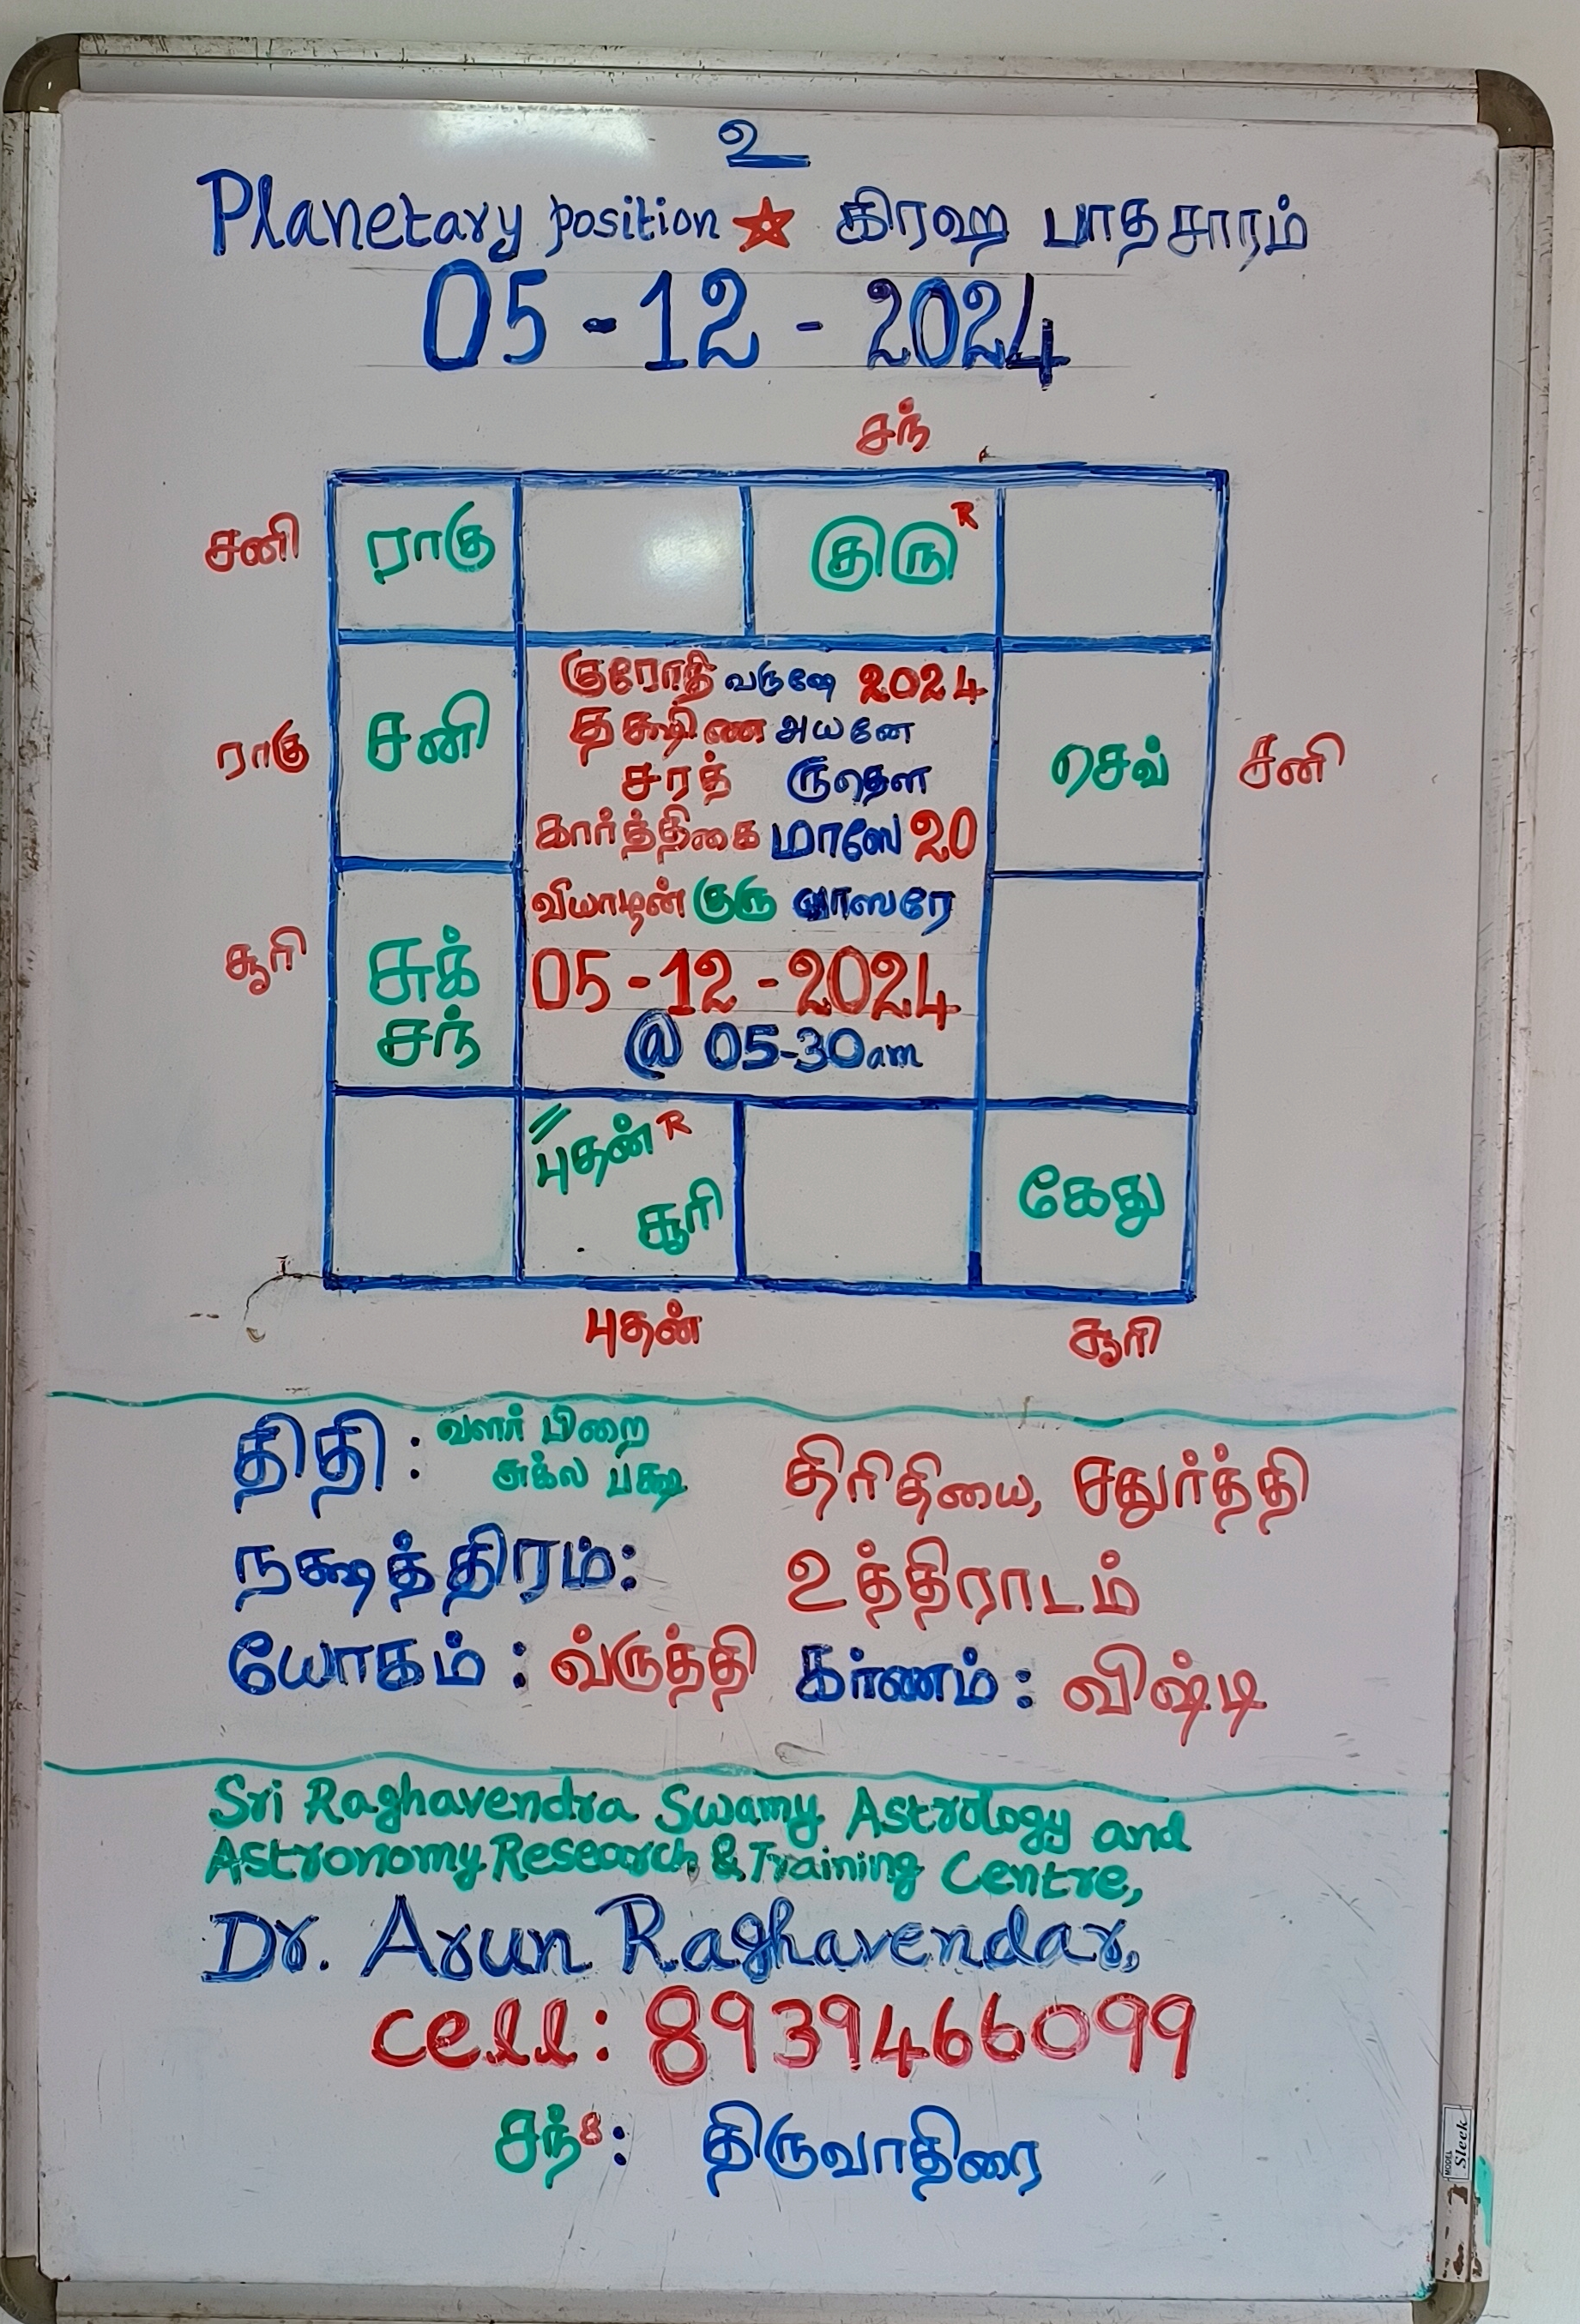 உ
Planetary position ★ கிரஹ பாதசாரம்
05-12-2024
சந்
சனி ராகு குரு R
குரோதி வருஷே 2024
தக்ஷிண அயனே
ராகு சனி சரத் ருதௌ செவ் சனி
கார்த்திகை மாஸே 20
வியாழன் குரு வாஸரே
சூரி சுக் 05-12-2024
சந் @ 05-30am
புதன் R
சூரி கேது
புதன் சூரி
திதி : வளர் பிறை
சுக்ல பக்ஷ திரிதியை, சதுர்த்தி
நக்ஷத்திரம்: உத்திராடம்
யோகம் : வ்ருத்தி கர்ணம் : விஷ்டி
Sri Raghavendra Swamy Astrology and
Astronomy Research & Training Centre,
Dr. Arun Raghavendar,
cell: 8939466099
சந்8: திருவாதிரை
MODEL Sleek